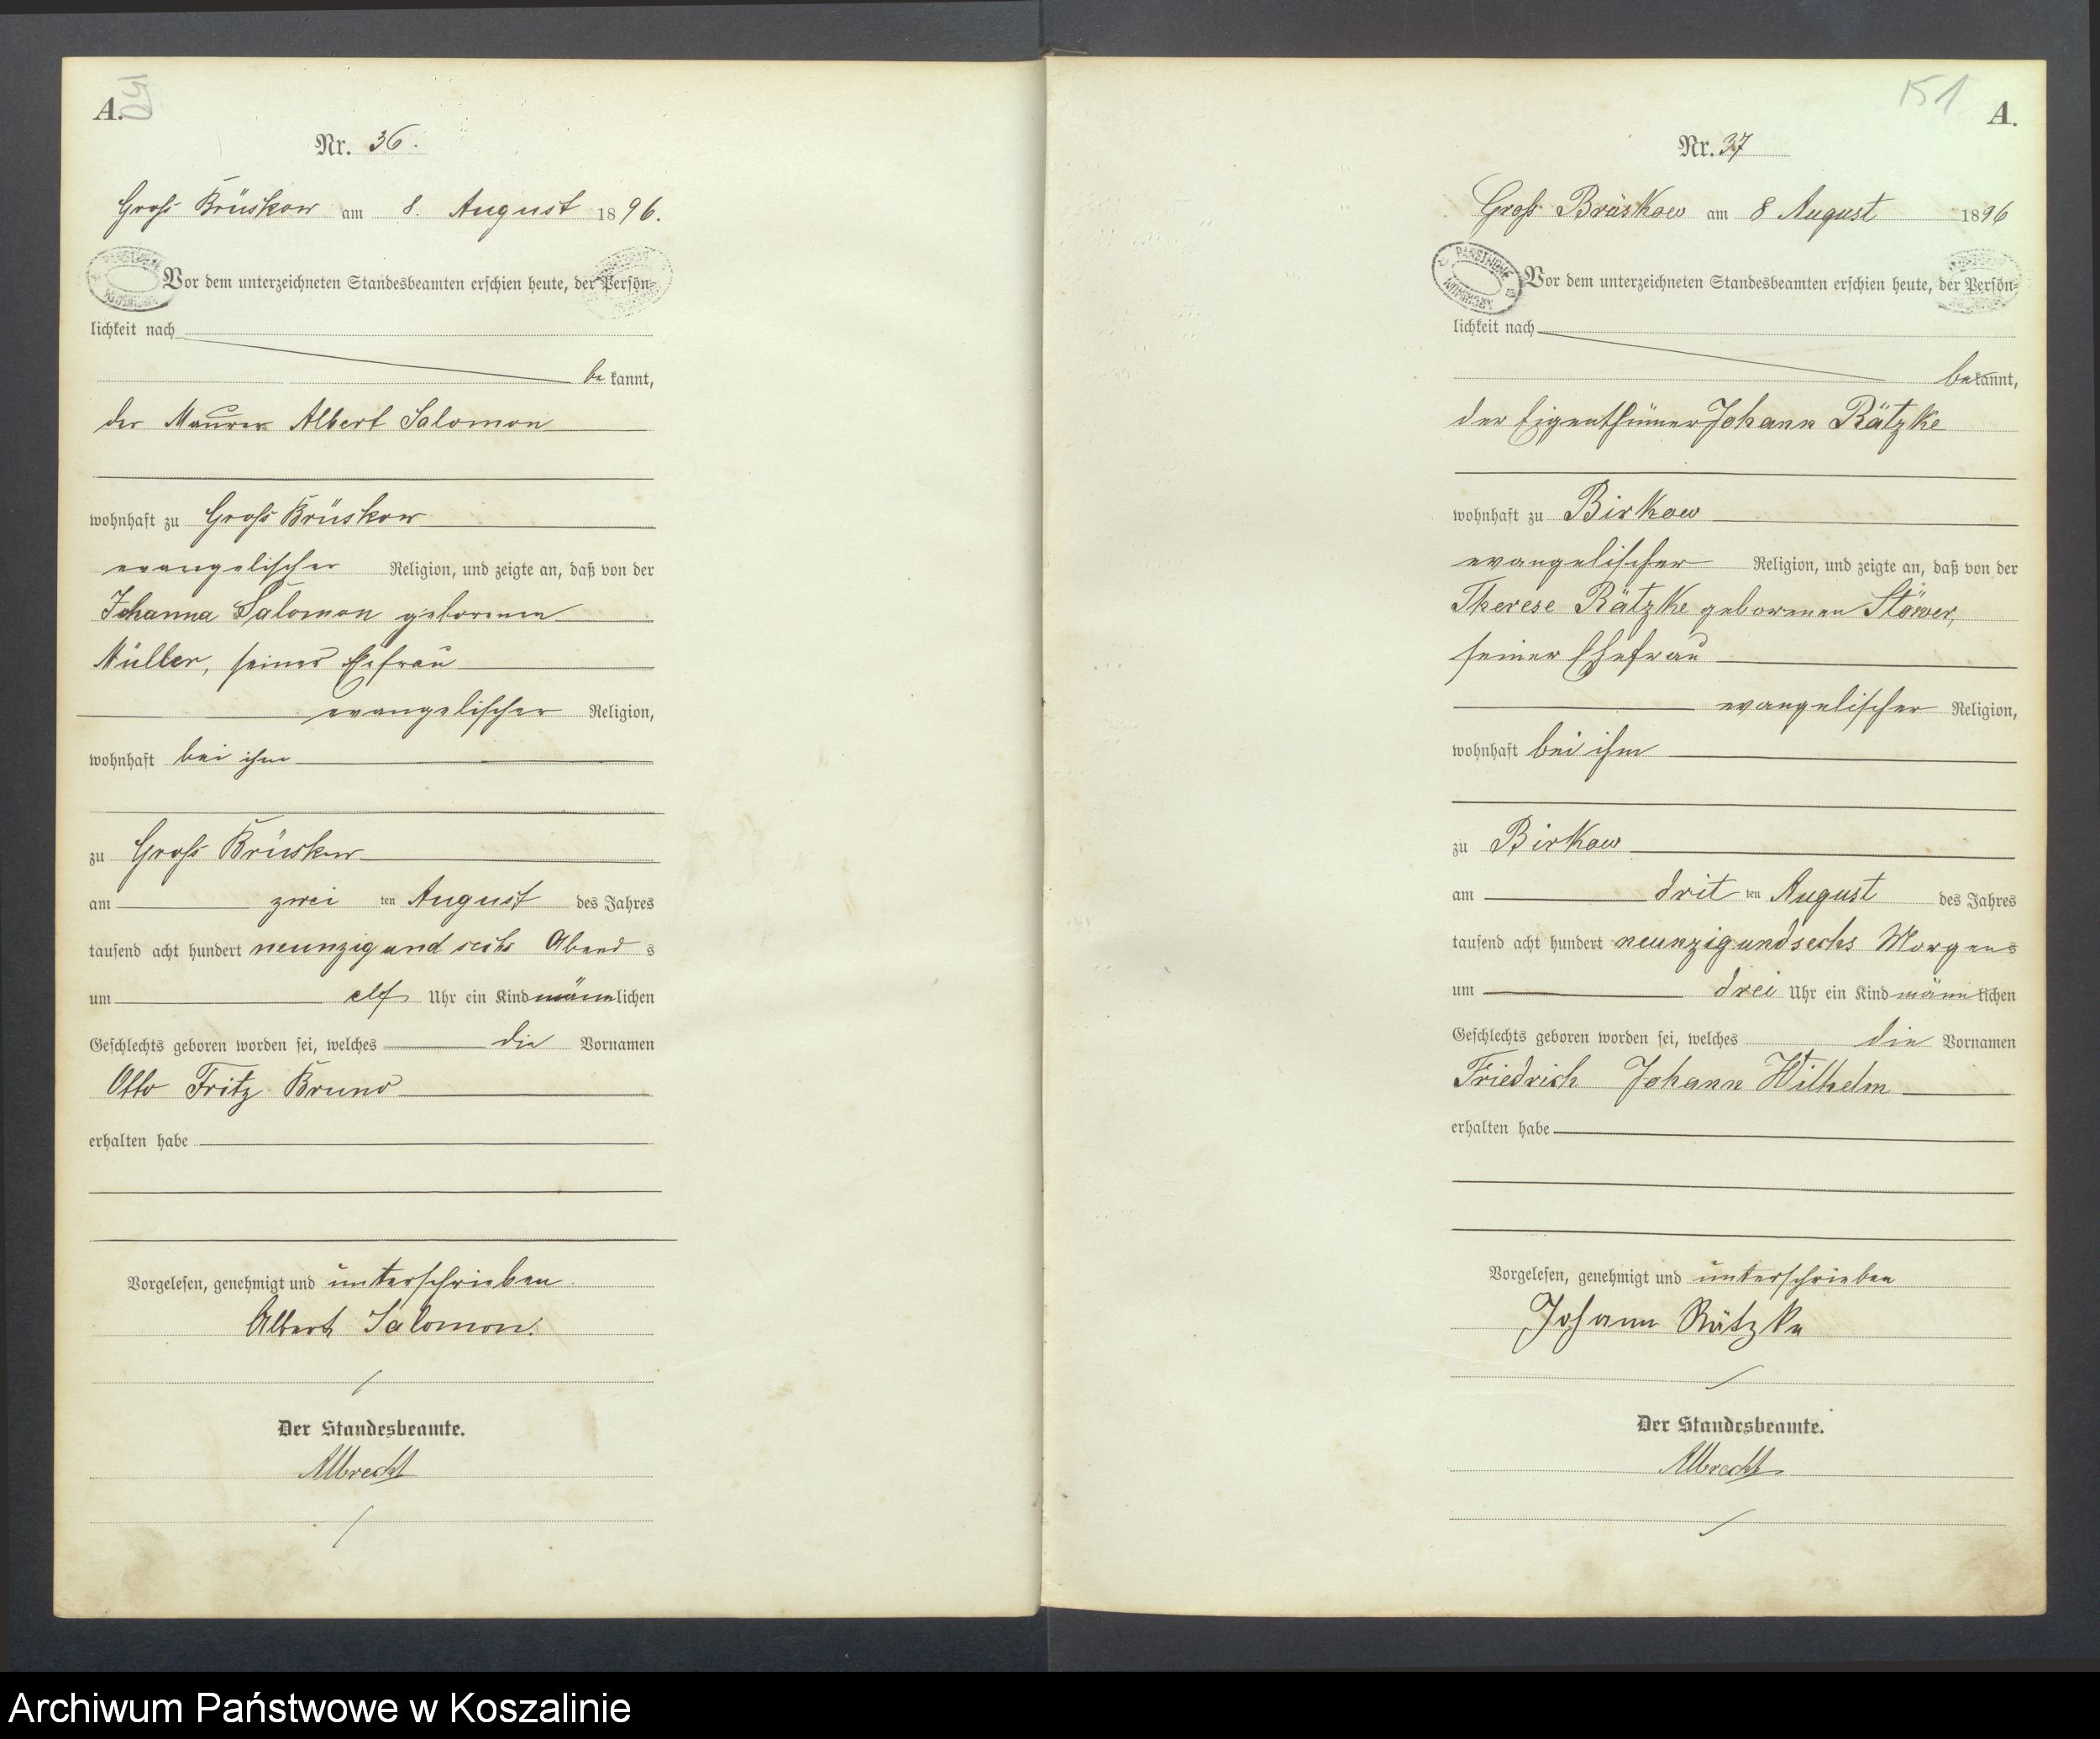 150
A.
Nr. 36.
Groß Brüskow am 8. August 1896.
Vor dem unterzeichneten Standesbeamten erschien heute, der Persön-
lichkeit nach
be kannt,
der Maurer Albert Salomon
wohnhaft zu Groß Brüskow
evangelischer Religion, und zeigte an, daß von der
Johanna Salomon geborenen
Müller, seiner Ehefrau
evangelischer Religion,
wohnhaft bei ihm
zu Groß Brüskow
am zwei ten August des Jahres
tausend acht hundert neunzig und sechs Abend s
um elf Uhr ein Kind männlichen
Geschlechts geboren worden sei, welches die Vornamen
Otto Fritz Bruno
erhalten habe
Vorgelesen, genehmigt und unterschrieben.
Albert Salomon.
Der Standesbeamte.
Albrecht
151
A.
Nr. 37
Groß Brüskow am 8 August 1896
Vor dem unterzeichneten Standesbeamten erschien heute, der Persön-
lichkeit nach
bekannt,
der Eigenthümer Johann Rätzke
wohnhaft zu Birkow
evangelischer Religion, und zeigte an, daß von der
Therese Rätzke geborenen Stöwer,
seiner Ehefrau
evangelischer Religion,
wohnhaft bei ihm
zu Birkow
am drit ten August des Jahres
tausend acht hundert neunzigundsechs Morgens
um drei Uhr ein Kind männlichen
Geschlechts geboren worden sei, welches die Vornamen
Friedrich Johann Wilhelm
erhalten habe
Vorgelesen, genehmigt und unterschrieben
Johann Rätzke
Der Standesbeamte.
Albrecht
Archiwum Państwowe w Koszalinie